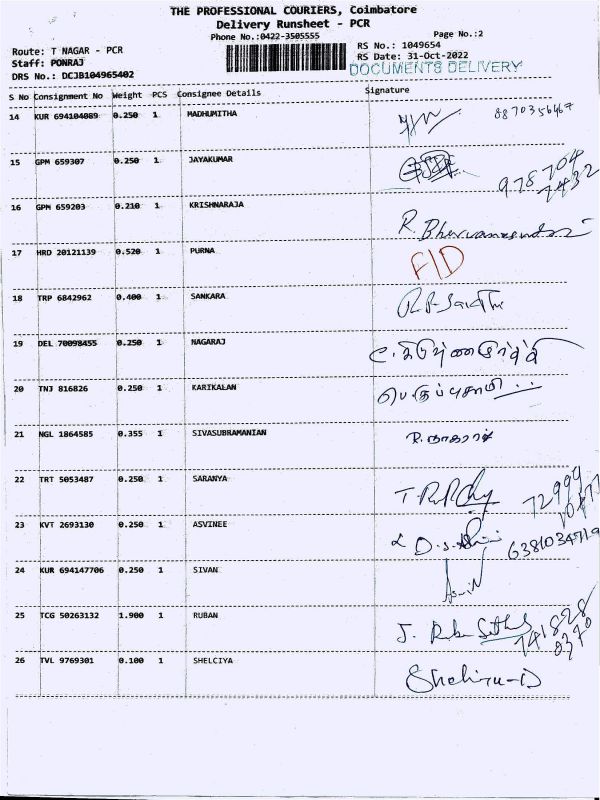 THE PROFESSIONAL COURIERS, Coimbatore
Delivery Runsheet - PCR
Phone No.:0422-3505555
Page No.:2
Route: T NAGAR - PCR
RS No.: 1049654
Staff: PONRAJ
RS Date: 31-Oct-2022
DRS No.: DCJB104965402
DOCUMENTS DELIVERY
S No Consignment No Weight PCS Consignee Details Signature
14 KUR 694104089 0.250 1 MADHUMITHA 8870356467
15 GPM 659307 0.250 1 JAYAKUMAR
978704
7432
16 GPM 659203 0.210 1 KRISHNARAJA
17 HRD 20121139 0.520 1 PURNA FID
18 TRP 6842962 0.400 1 SANKARA
19 DEL 70098455 0.250 1 NAGARAJ
20 TNJ 816826 0.250 1 KARIKALAN
21 NGL 1864585 0.355 1 SIVASUBRAMANIAN
22 TRT 5053487 0.250 1 SARANYA
72999
23 KVT 2693130 0.250 1 ASVINEE 6381034719
24 KUR 694147706 0.250 1 SIVAN
25 TCG 50263132 1.900 1 RUBAN J.
741828
0370
26 TVL 9769301 0.100 1 SHELCIYA